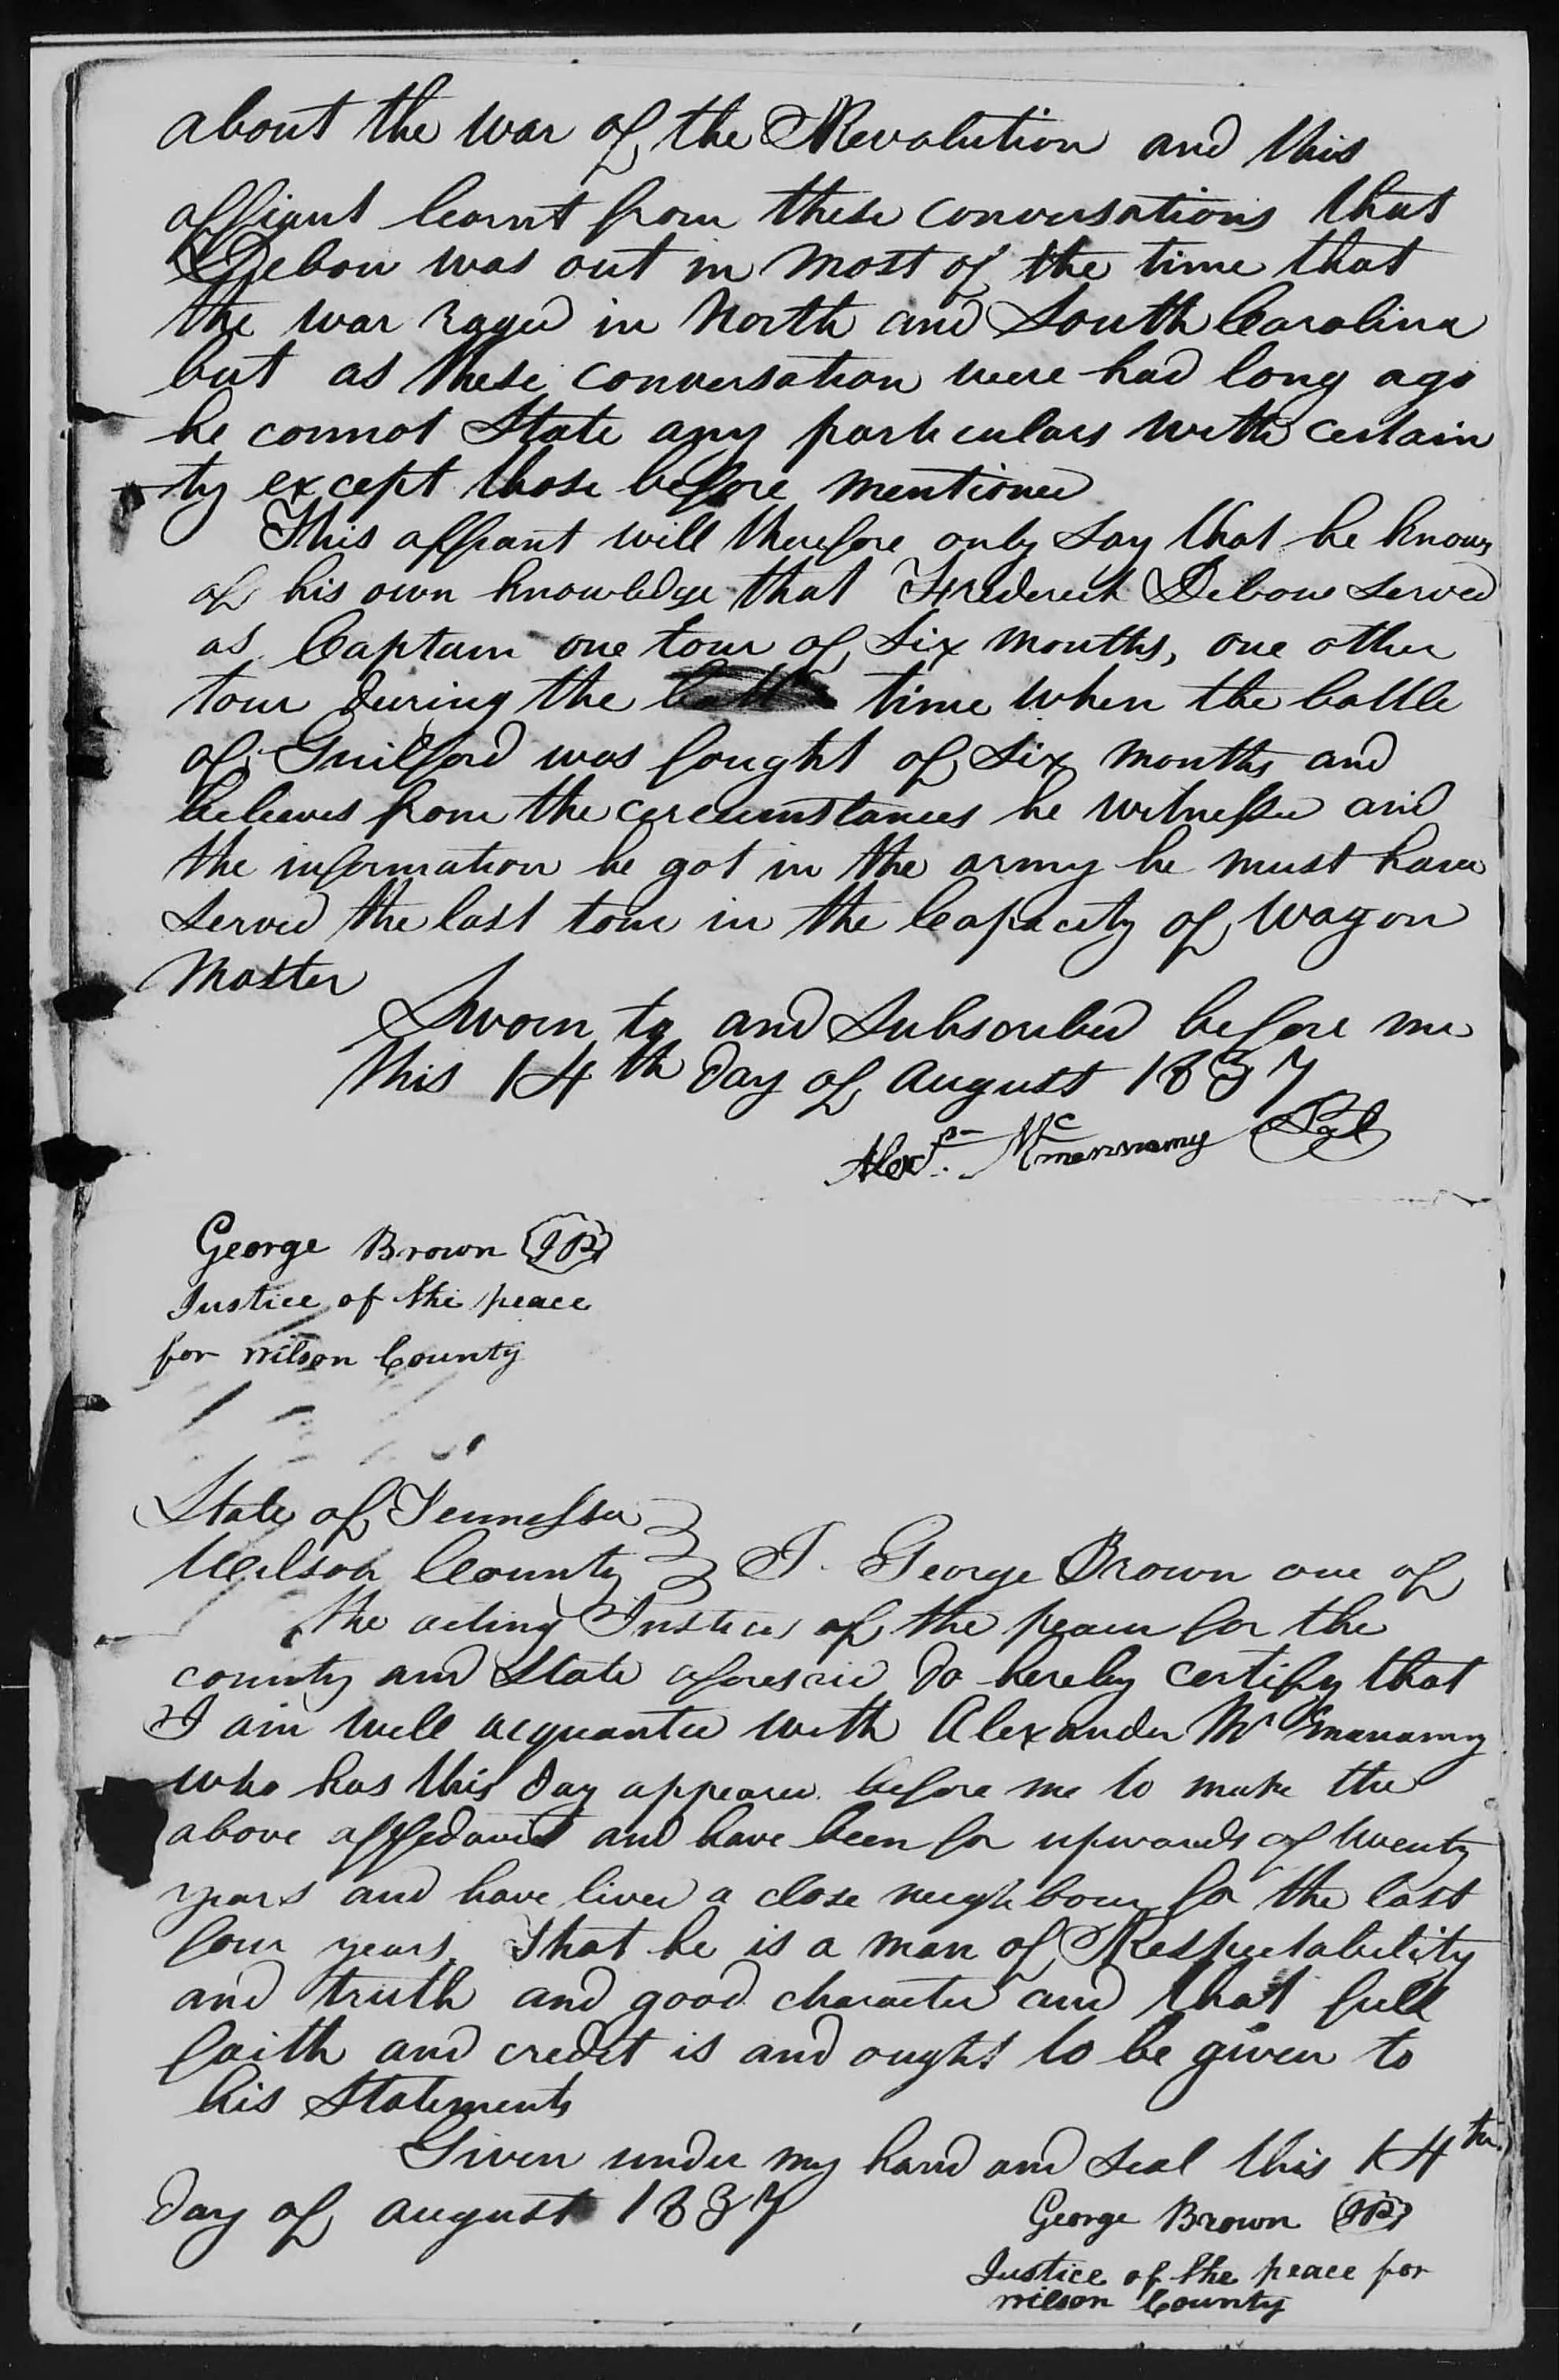 about the war of the Revolution and this
affiant learnt from these conversations that
Debow was out in most of the time that
the war raged in North and South Carolina
but as these conversation were had long ago
he connot State any particulars with certain
ty except those before mentioned
This affiant will therefore only say that he knows
of his own knowledge that Frederick Debow served
as Captain one tour of Six months, one other
tour during the time when the battle
of Guilford was fought of Six months and
believes from the circumstances he witnessed and
the information he got in the army he must have
served the last tour in the Capacity of Wagon
Master
Sworn to and Subscribed before me
this 14th day of August 1837
Alexr. McMennamy Seal
George Brown JP
Justice of the peace
for Wilson County
State of Tennessee
Wilson County I. George Brown one of
the acting Justices of the peace for the
county and State aforesaid do hereby certify that
I am well acquanted with Alexander
who has this day appeared before me to make the
above affedavit and have been for upwards of twenty
years and have lived a close neighbour for the last
four years, That he is a man of Respectability
and truth and good character and that full
faith and credit is and ought to be given to
his Statements
Given under my hand and Seal this 14th
day of August 1837
George Brown JP
Justice of the peace for
Wilson County